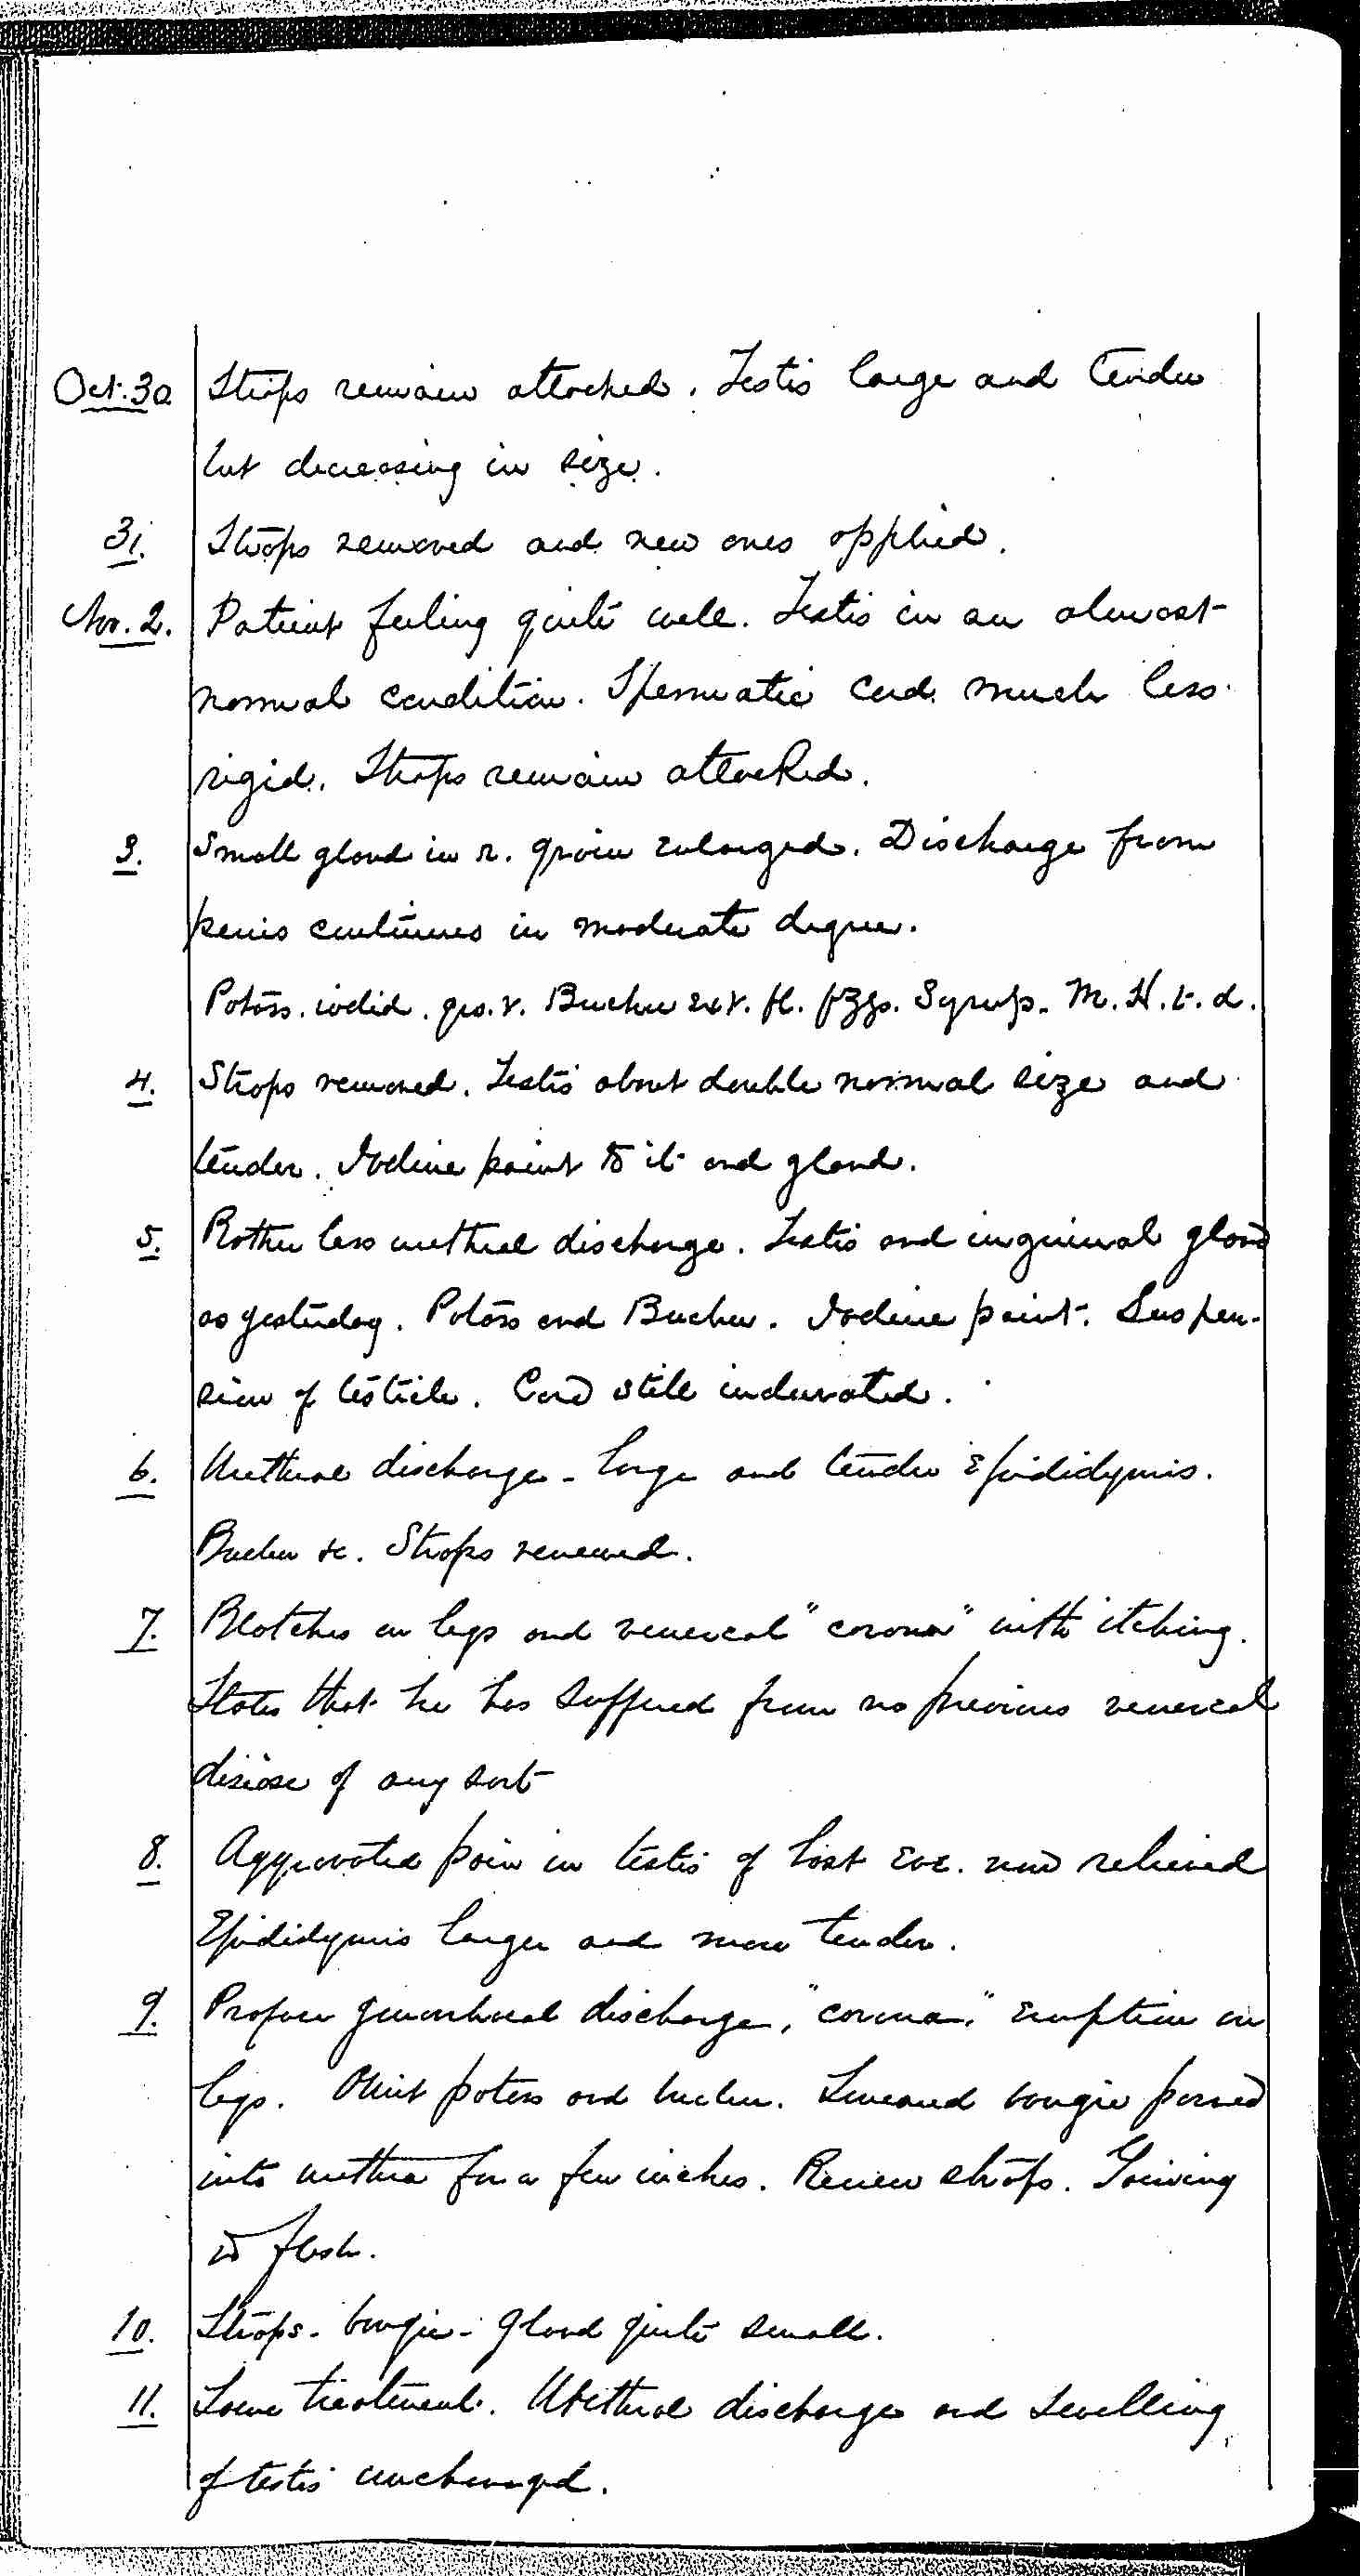 Oct. 30. Straps remain attached. Testis large and tender
but decreasing in size.
31. Straps removed and new ones applied.
Nov. 2. Patient feeling quite well. Testis in an almost
normal condition. Spermatic cord much less
rigid. Straps remain attached.
3. Small gland in r. groin enlarged. Discharge from
penis continues in moderate degree.
Potass. iodid. grs. v. Buchu ext. fl. Syrup. M. H. t. d.
4. Straps removed. Testis about double normal size and
tender. Iodine paint to it and gland.
5. Rather less urethral discharge. Testis and inguinal gland
as yesterday. Potass and Buchu. Iodine paint. Suspen-
sion of testicle. Cord still indurated.
6. Urethral discharge - large and tender Epididymis.
Buchu &c. Straps renewed.
7. Blotches on legs and venereal "corona" with itching.
States that he has suffered from no previous venereal
disease of any sort
8. Aggravated pain in testis of last eve. now relieved
Epididymis larger and more tender.
9. Profuse gonorrhoeal discharge, "corona," eruption on
legs. Omit potass and buchu. bougie passed
into urethra for a few inches. Renew straps. Gaining
in flesh.
10. Straps - bougie - gland quite small.
11. Same treatment. Urethral discharge and swelling
of testis unchanged.